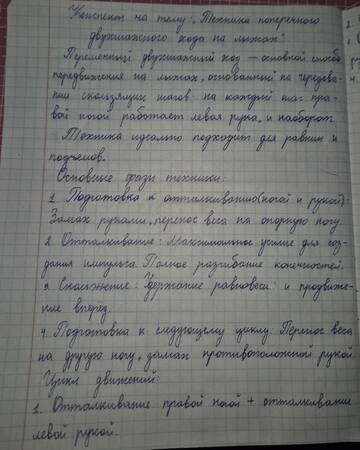 Конспект на тему: "Техника поперечного
двухшажного хода на лыжах"
Переменный двухшажный ход – основной способ
передвижения на лыжах, основанный на чередова-
нии скользящих шагов: на каждый шаг пра-
вой ногой работает левая рука, и наоборот.
Техника идеально подходит для равнин и
подъемов.
Основные фазы техники:
1. Подготовка к отталкиванию (ногой и рукой):
Замах руками, перенос веса на опорную ногу.
2. Отталкивание: Максимальное усилие для соз-
дания импульса. Полное разгибание конечностей.
3. Скольжение: Удержание равновесия и продвиже-
ние вперед.
4. Подготовка к следующему циклу: Перенос веса
на другую ногу, замах противоположной рукой
Цикл движений:
1. Отталкивание правой ногой + отталкивание
левой рукой.